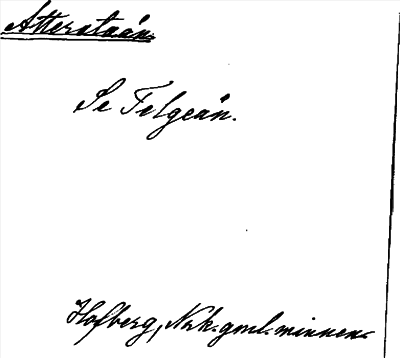 Atterstaån.
Se Telgeån.
Hofberg, Nrk. gml. minnen.